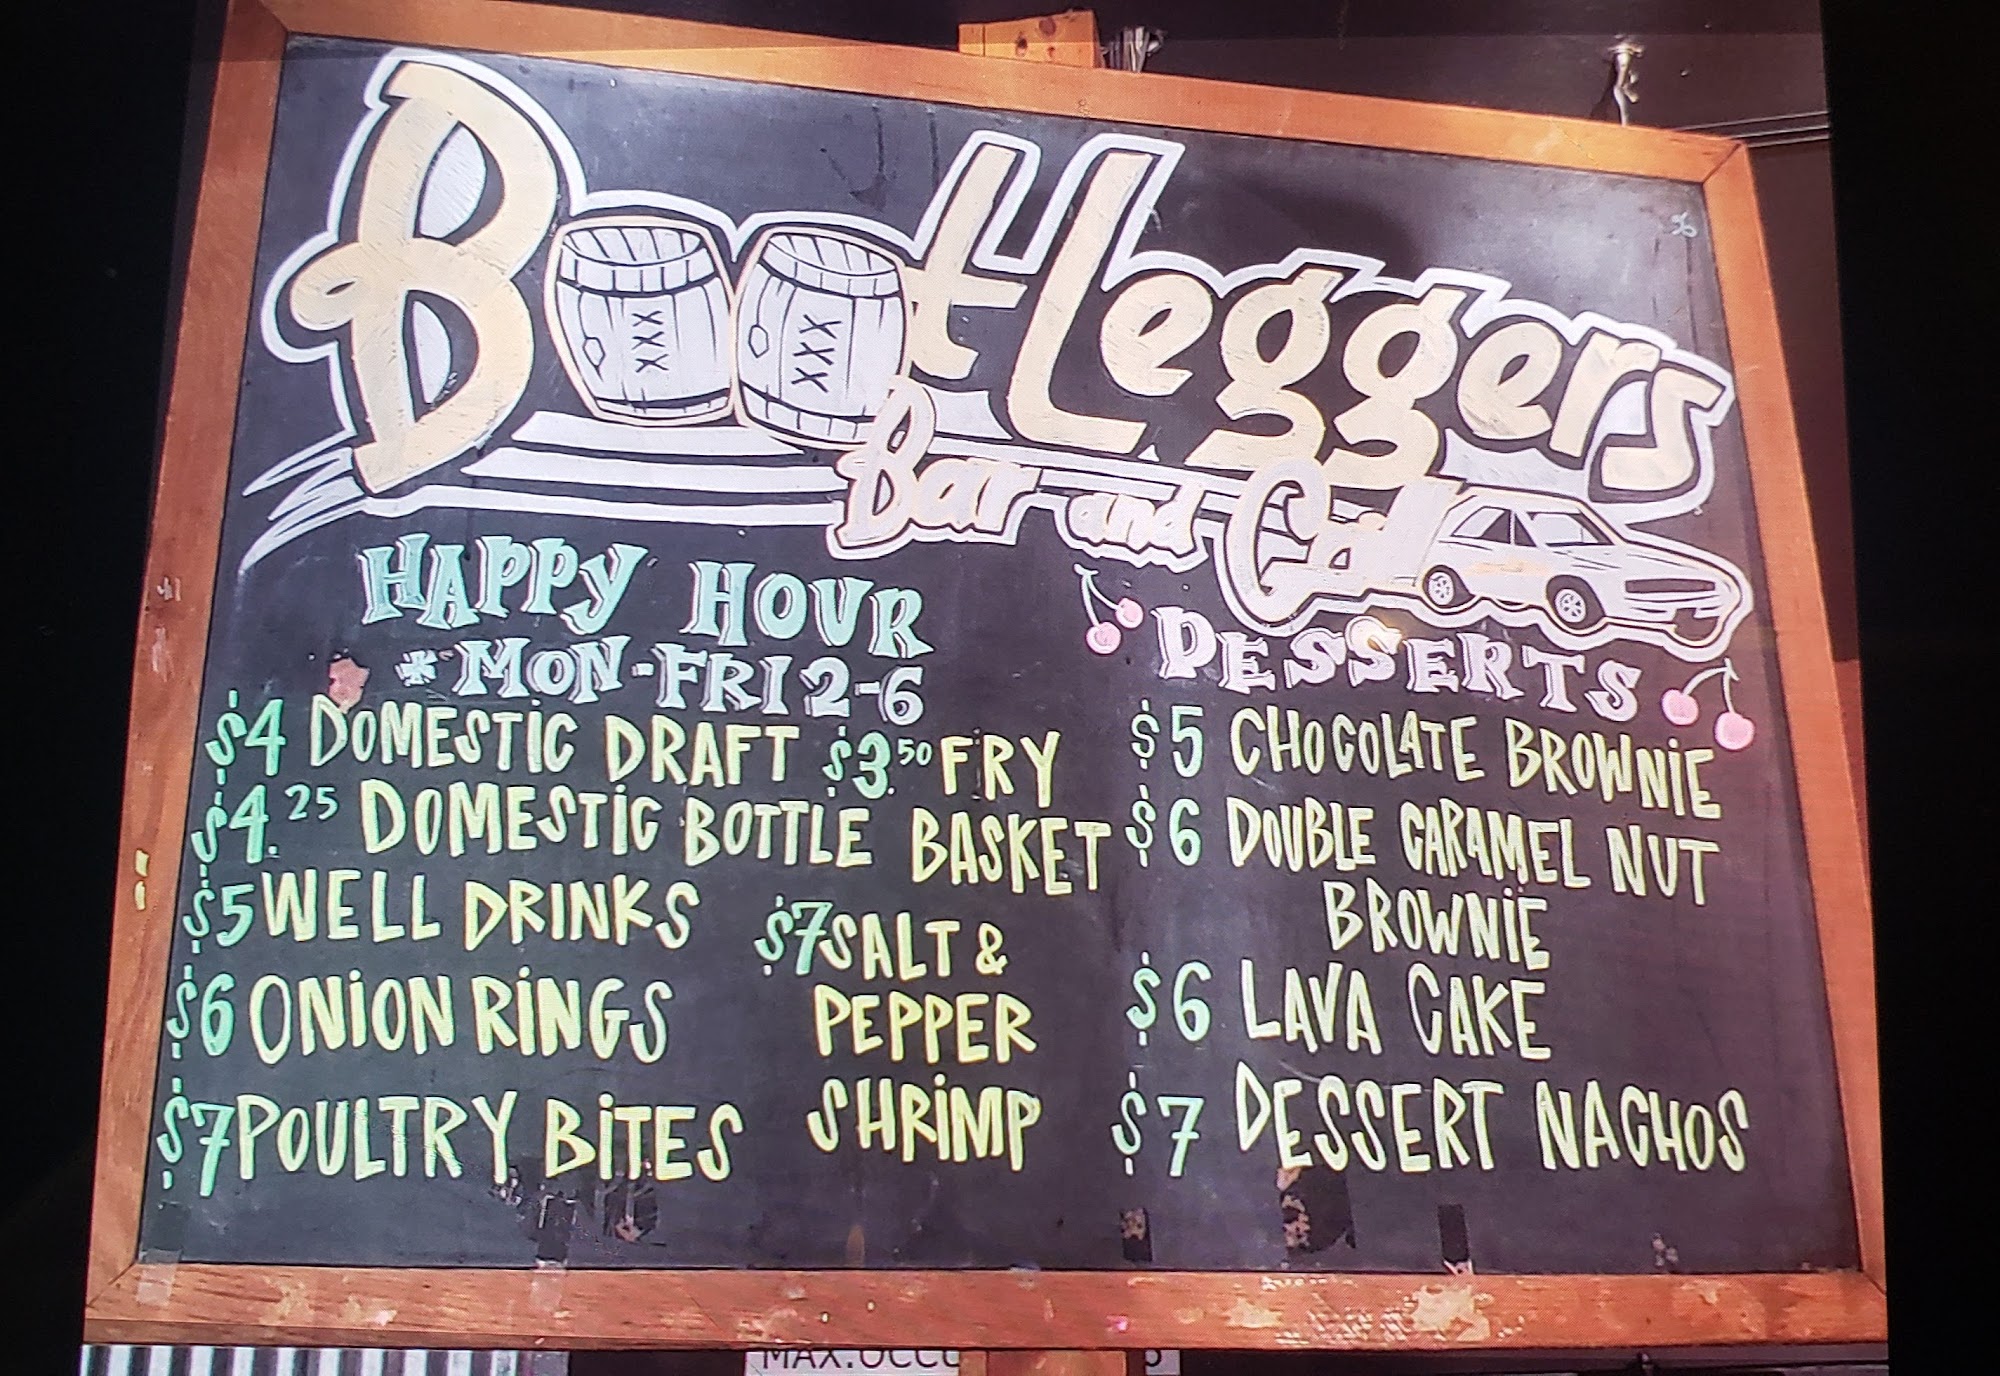 Bootleggers
XXX XXX
Bar and Grill
HAPPY HOUR
* MON-FRI 2-6
$4 DOMESTIC DRAFT
$4.25 DOMESTIC BOTTLE
$5 WELL DRINKS
$6 ONION RINGS
$7 POULTRY BITES
$3.50 FRY
BASKET
$7 SALT &
PEPPER
SHRIMP
DESSERTS
$5 CHOCOLATE BROWNIE
$6 DOUBLE CARAMEL NUT
BROWNIE
$6 LAVA CAKE
$7 DESSERT NACHOS
MAX.